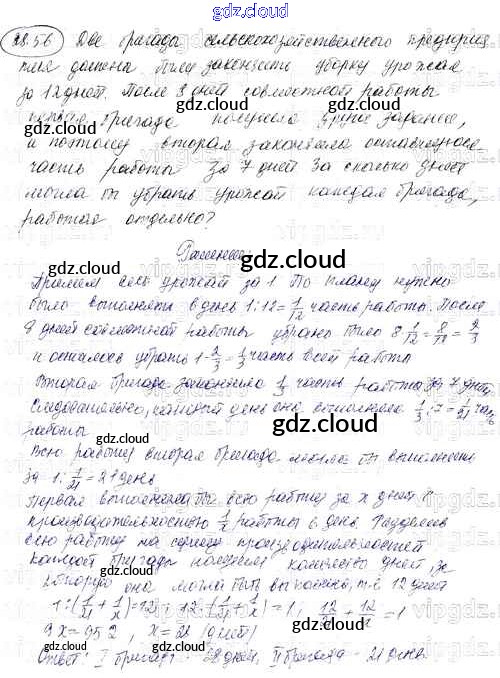 28.56 Две бригады сельскохозяйственного предприя
тия должны были закончить уборку урожая
за 12 дней. После 8 дней совместной работы
первая бригада получила другое задание,
и поэтому вторая закончила оставшуюся
часть работы за 7 дней За сколько дней
могла бы убрать урожай каждая бригада,
работая отдельно?
Решение
Примем весь урожай за 1 По плану нужно
было выполнять в день 1:12=1/12 часть работы. После
8 дней совместной работы убрано было 8·1/12=8/12=2/3
и осталось убрать 1-2/3=1/3 часть всей работы
Вторая бригада закончила 1/3 часть работы за 7 дней
Следовательно, каждый день она выполняла 1/3:7=1/21 часть
работы
Всю работу вторая бригада могла бы выполнить
за 1:1/21=21 день
Первая выполнила бы всю работу за x дней с
производительностью 1/x работы в день. Разделив
всю работу на сумму производительностей
каждой бригады получим количество дней, за
которую она могла быть, т.е 12 дней
1:(1/21+1/x)=12; 12·(1/21+1/x)=1; 12/21+12/x=1
9x=252, x=28 (дней)
Ответ: I бригада - 28 дней, II бригада - 21 день
gdz.cloud
vipgdz.cloud